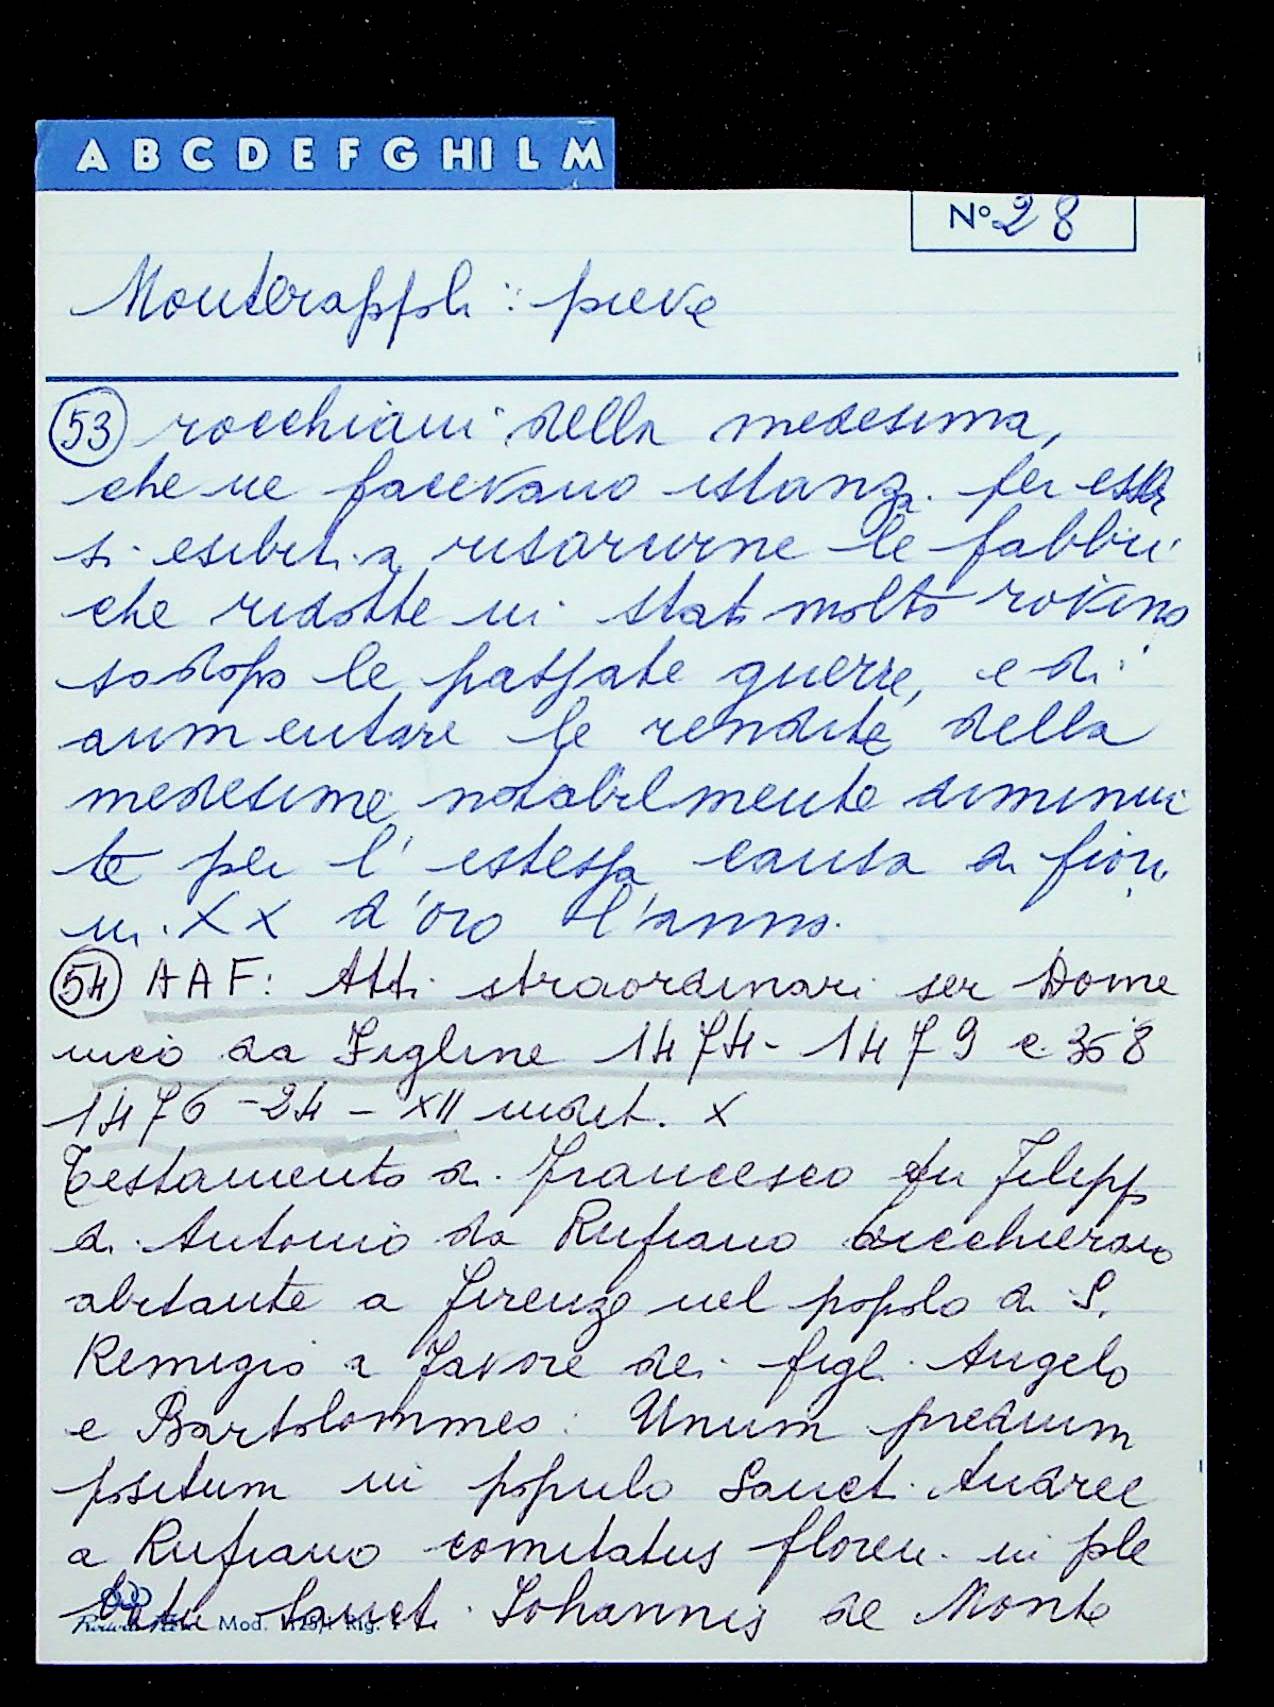 A B C D E F G HI L M
N° 28
Monterappoli: pieve
53 rocchiani della medesima,
che ne facevano istanza per esser
si esibiti a risarcirne le fabbri
che ridotte in stato molto rovino
so dopo le passate guerre, e di
aumentare le rendite della
medesime notabilmente diminui
te per l'istessa causa di fiori
ni XX d'oro l'anno.
54 AAF: Atti straordinari ser Dome
nico da Figline 1474-1479 c 358
1476-24-XII indict. X
Testamento di Francesco fu Filippo
di Antonio da Rufiano
abitante a Firenze nel popolo di S.
Remigio a favore dei figli Angelo
e Bartolommeo: Unum predium
positum in populo Sancti Andree
a Rufiano comitatus floren. in ple
batu Sancti Johannis de Monte
Mod. Rig.